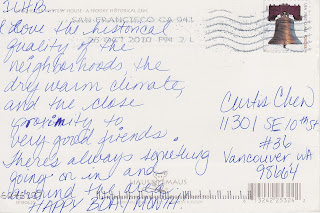 SAN FRANCISCO CA 941
26 OCT 2010 PM 2 L
I love the historical
quality of the
neighborhoods the
dry warm climate,
and the close
proximity to
very good friends.
There's always something
going on in and
around the area.
HAPPY BDAY MONTH
Curtis Chen
11301 SE 10th St
#36
Vancouver, WA
98664